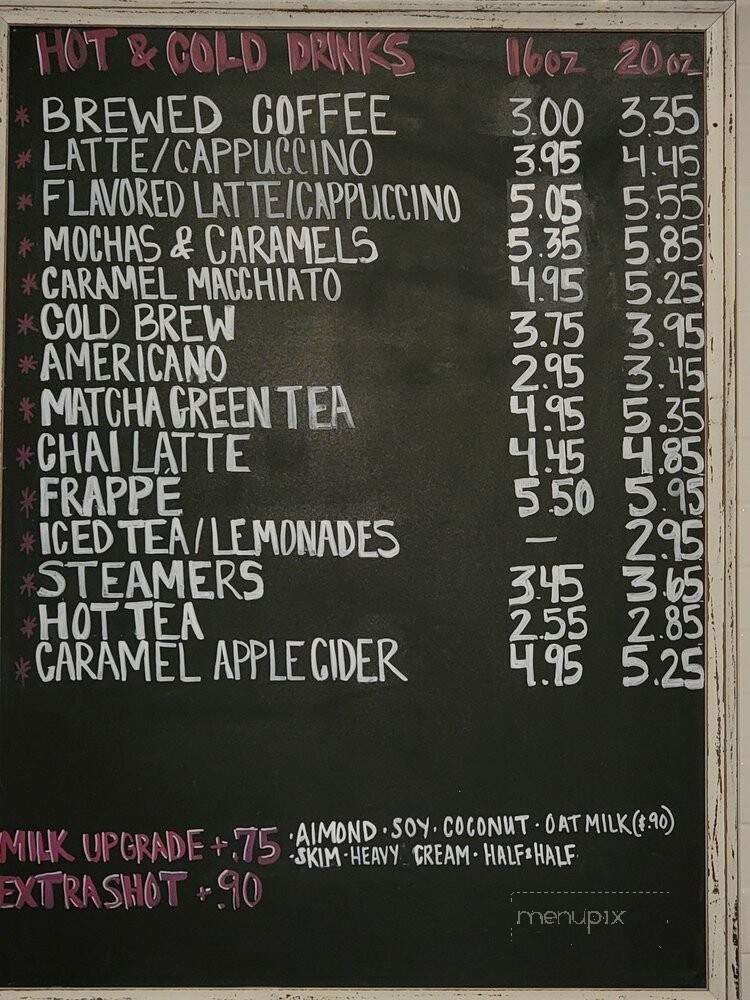 HOT & COLD DRINKS 16oz 20oz
* BREWED COFFEE 3.00 3.35
* LATTE/CAPPUCCINO 3.95 4.45
* FLAVORED LATTE/CAPPUCCINO 5.05 5.55
* MOCHAS & CARAMELS 5.35 5.85
* CARAMEL MACCHIATO 4.95 5.25
* COLD BREW 3.75 3.95
* AMERICANO 2.95 3.45
* MATCHA GREEN TEA 4.95 5.35
* CHAI LATTE 4.45 4.85
* FRAPPÉ 5.50 5.95
* ICED TEA/LEMONADES — 2.95
* STEAMERS 3.45 3.65
* HOT TEA 2.55 2.85
* CARAMEL APPLE CIDER 4.95 5.25
MILK UPGRADE +.75 ·AlMOND · SOY · COCONUT · OAT MILK ($.90)
·SKIM · HEAVY CREAM · HALF&HALF
EXTRA SHOT +.90
menupix